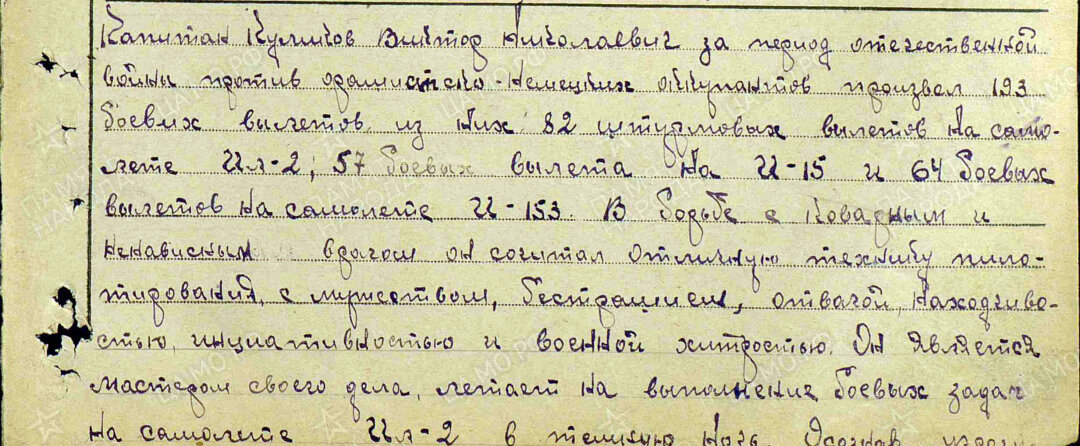 Капитан Куликов Виктор Николаевич за период отечественной
войны против фашистско-немецких оккупантов произвел 193
боевых вылетов из них 82 штурмовых вылетов на само-
лете Ил-2, 57 боевых вылета на И-15 и 64 боевых
вылетов на самолете И-153. В борьбе с коварным и
ненависным врагом он сочитал отличную технику пило-
тирования, с мужеством, бестрашием, отвагой, находчиво-
стью, инициативностью и военной хитростью. Он является
мастером своего дела, летает на выполнение боевых задач
на самолете Ил-2 в темную ночь.